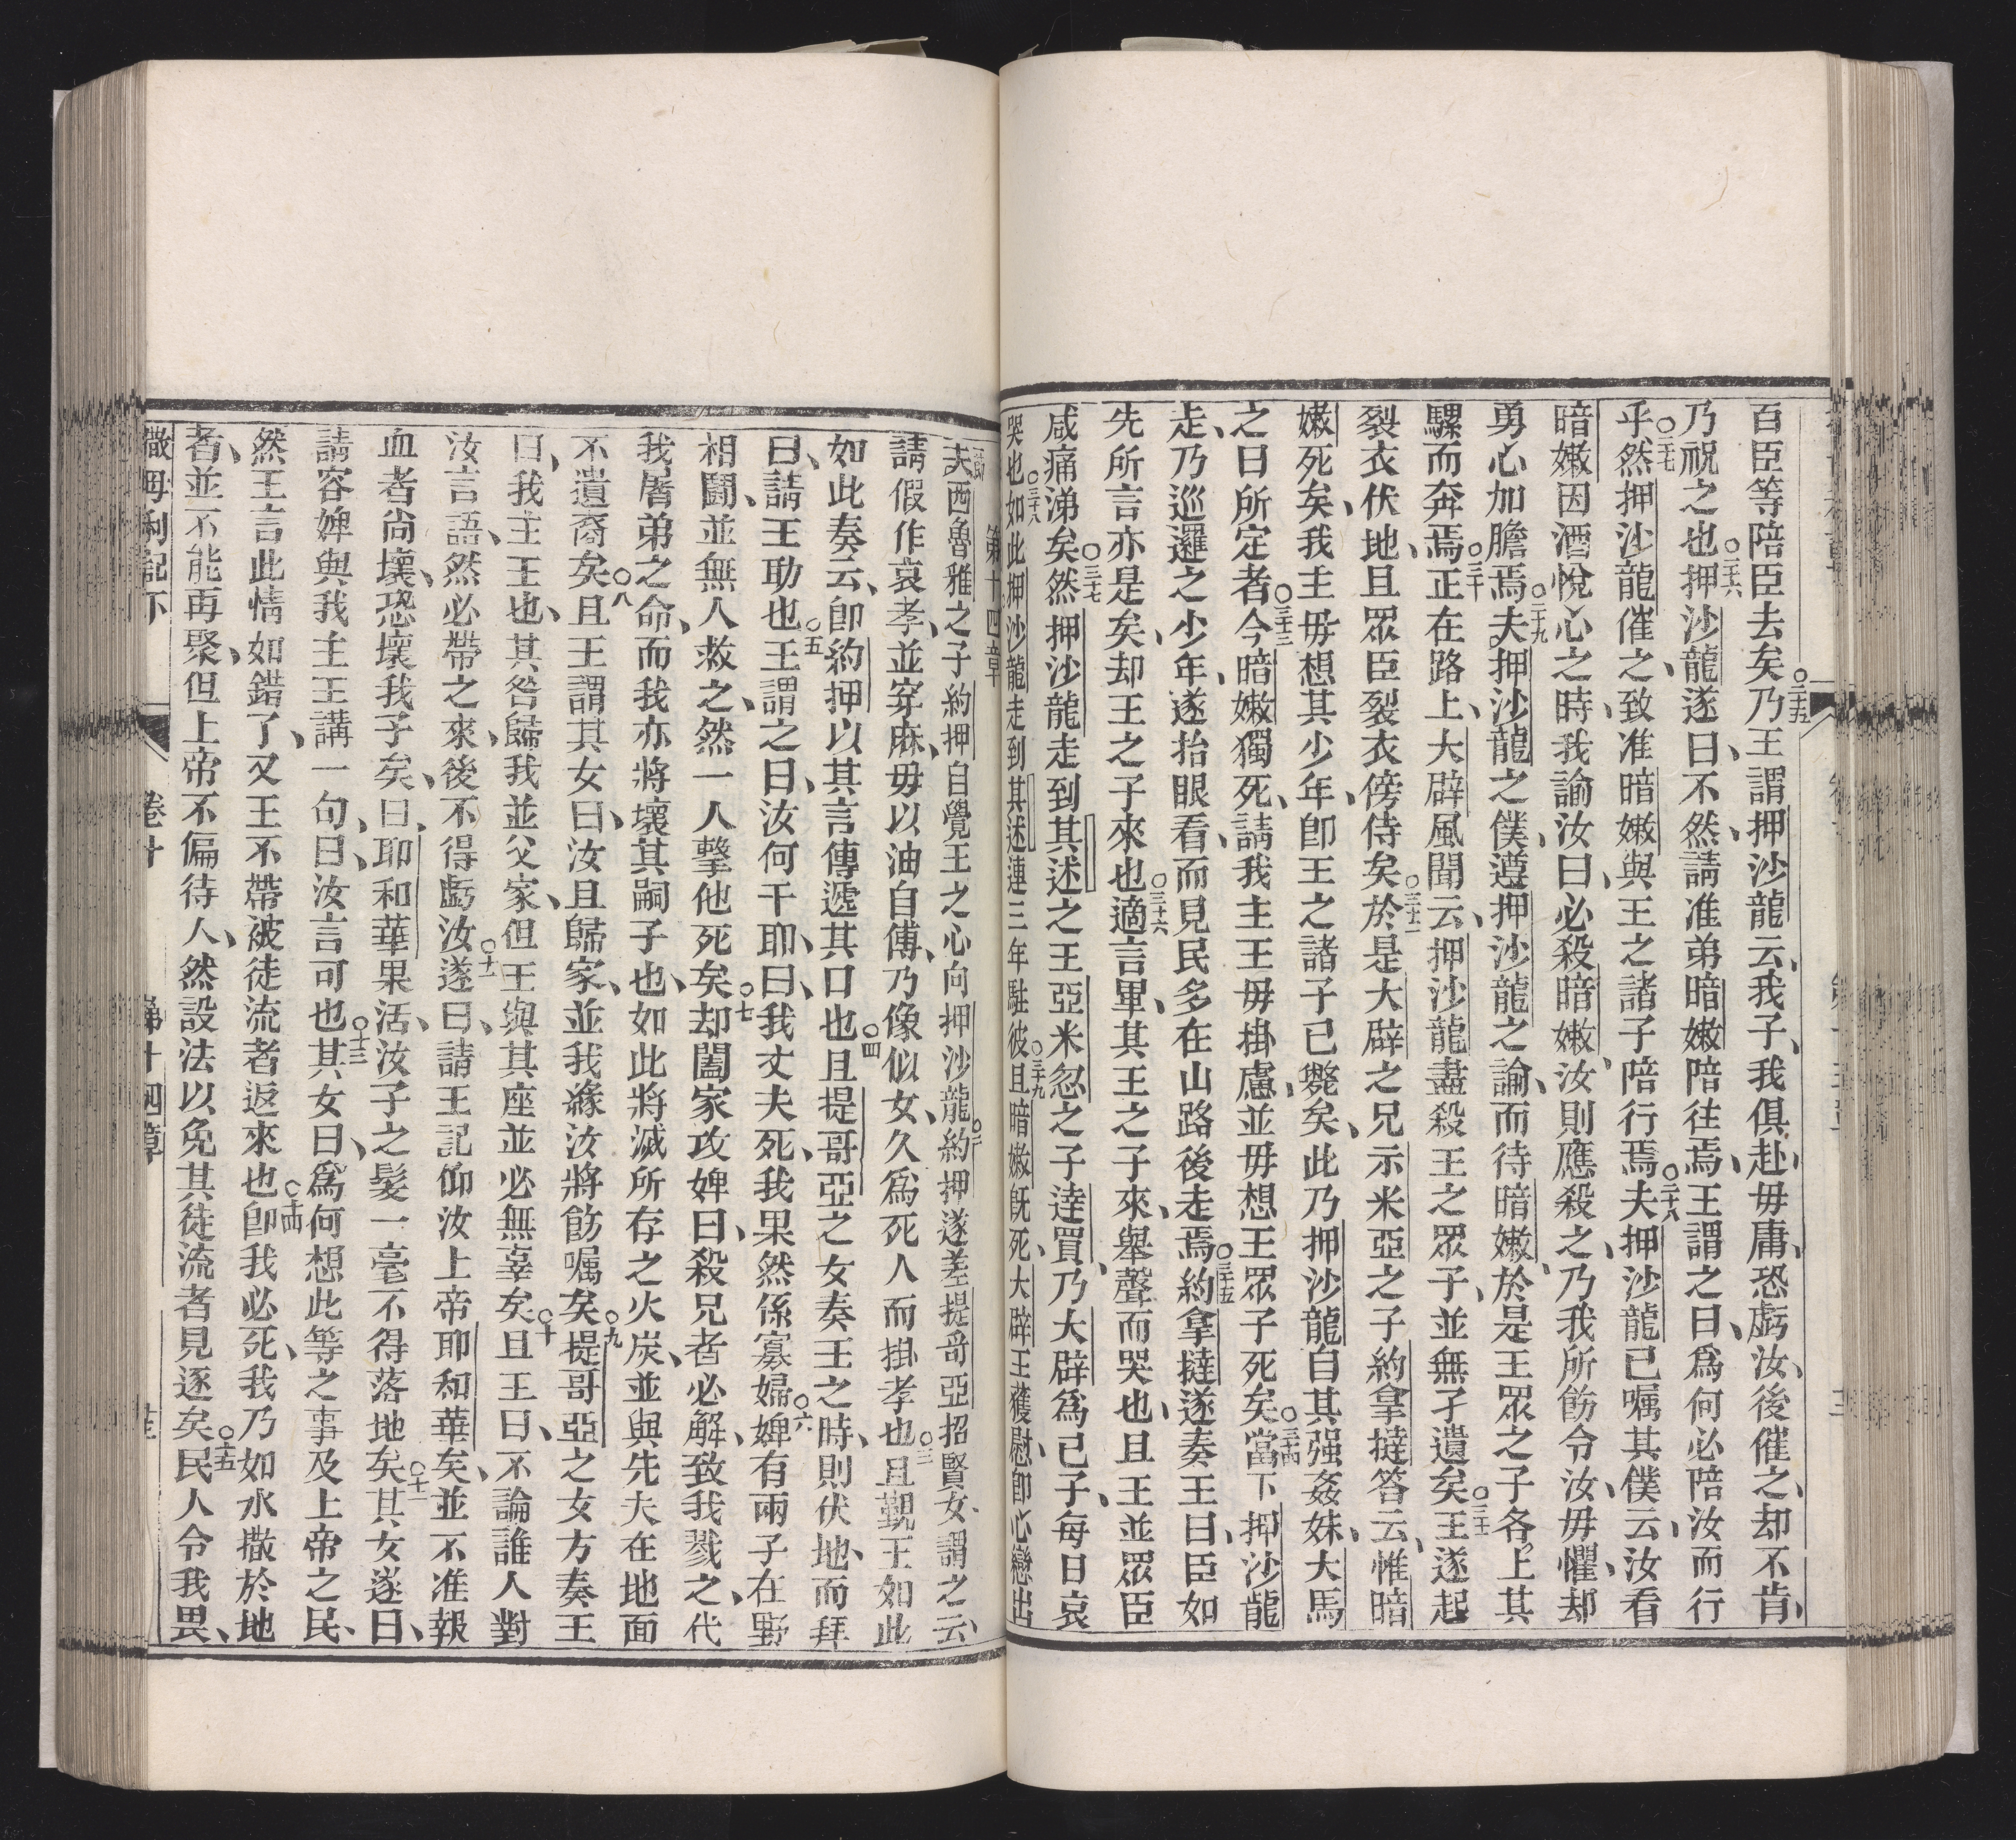 百臣等陪臣去矣○二十五乃王謂押沙龍云、我子、我俱赴毋庸、恐虧汝、後催之、却不肯、
乃祝之也○二十六押沙龍遂曰、不然、請准弟暗嫩陪往焉、王謂之曰、爲何必陪汝而行
乎○二十七然押沙龍催之、致准暗嫩與王之諸子陪行焉○二十八夫押沙龍已嘱其僕云、汝看
暗嫩因酒悅心之時、我諭汝曰、必殺暗嫩、汝則應殺之、乃我所飭令汝、毋懼、却
勇心加膽焉○二十九夫押沙龍之僕、遵押沙龍之論、而待暗嫩、於是王眾之子各上其
騾而奔焉○三十正在路上、大辟風聞云、押沙龍盡殺王之眾子、並無孑遺矣○三十一王遂起
裂衣伏地、且眾臣裂衣傍侍矣○三十二於是大辟之兄示米亞之子約拿撻答云、惟暗
嫩死矣、我主毋想其少年、卽王之諸子已斃矣、此乃押沙龍自其强姦妹、大馬
之日所定者○三十三今暗嫩獨死、請我主王毋掛慮、並毋想王眾子死矣○三十四當下押沙龍
走、乃巡邏之少年、遂抬眼看、而見民多在山路後走焉○三十五約拿撻遂奏王曰、臣如
先所言亦是矣、却王之子來也○三十六適言畢、其王之子來、舉聲而哭也、且王並眾臣
咸痛涕矣○三十七然押沙龍走到其述之王亞米忽之子達買、乃大辟爲己子、每日哀
哭也○三十八如此押沙龍走到其述連三年駐彼○三十九且暗嫩既死、大辟王獲慰、卽心戀出
第十四章
夫西魯雅之子約押自覺王之心向押沙龍○二約押遂差提哥亞招賢女、謂之云、
請假作哀孝、並穿麻、毋以油自傅、乃像似女、久爲死人而掛孝也○三且覲王如此
如此奏云、卽約押以其言傳遞其口也○四且提哥亞之女奏王之時、則伏地而拜
曰、請王助也○五王謂之曰、汝何干耶、曰、我丈夫死、我果然係寡婦○六婢有兩子在野
相鬪、並無人救之、然一人擊他死矣○七却闔家攻婢曰、殺兄者必解、致我戮之、代
我屠弟之命、而我亦將壞其嗣子也、如此將滅所存之火炭、並與先夫在地面
不遺裔矣○八且王謂其女曰、汝且歸家、並我緣汝將飭嘱矣○九提哥亞之女方奏王
曰、我主王也、其咎歸我並父家、但王與其座並必無辜矣○十且王曰、不論誰人對
汝言語、然必帶之來、後不得虧汝○十一遂曰、請王記仰汝上帝耶和華矣、並不准報
血者尚壞、恐壞我子矣、曰、耶和華果活、汝子之髮一毫不得落地矣○十二其女遂曰、
請容婢與我主王講一句、曰、汝言可也○十三其女曰、爲何想此等之事及上帝之民、
然王言此情如錯了、又王不帶被徒流者返來也○十四卽我必死、我乃如水撒於地
者、並不能再聚、但上帝不偏待人、然設法以免其徒流者見逐矣○十五民人令我畏、
撒母利記下　卷十　第十四章